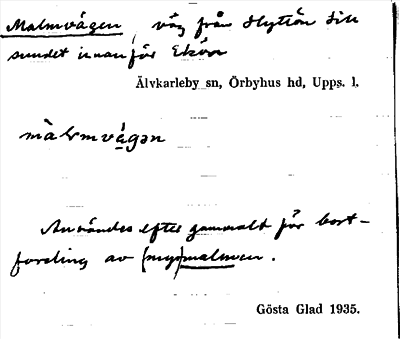 Malmvägen, väg från Hyttön till
sundet innanför Ekön
Älvkarleby sn, Örbyhus hd, Upps. l.
màlmvä́gən
Användes efter gammalt för bort-
forsling av (myr)malmen.
Gösta Glad 1935.